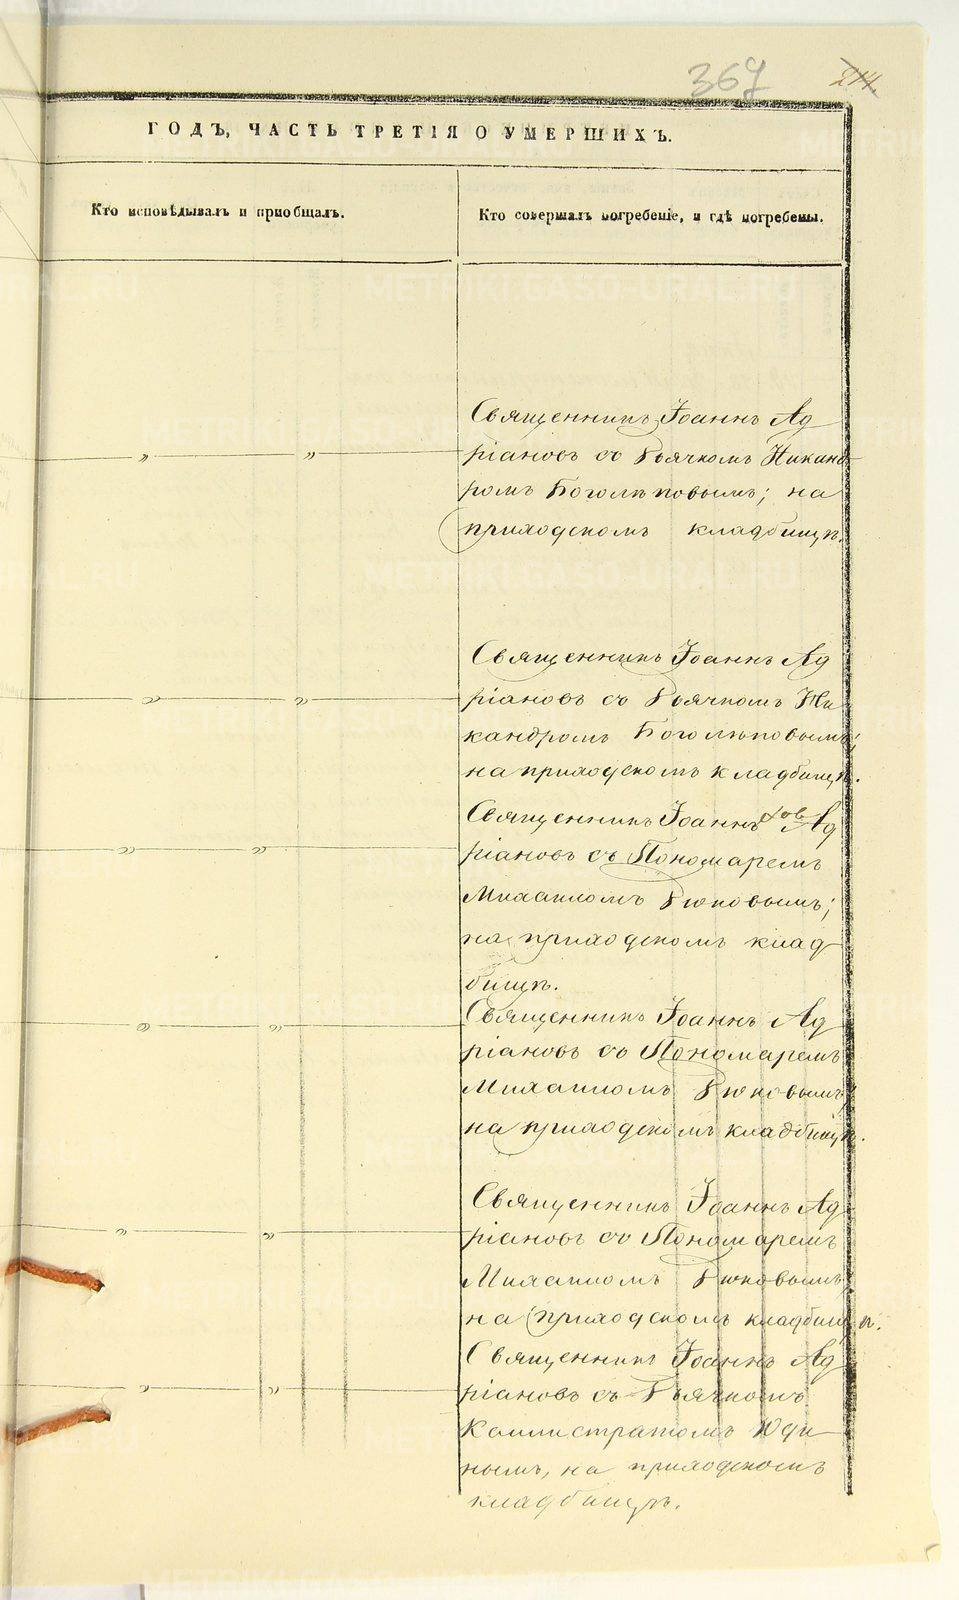 367
214.
ГОДЪ, ЧАСТЬ ТРЕТІЯ О УМЕРШИХЪ.
Кто исповѣдывалъ и пріобщалъ.
Кто совершалъ погребеніе, и гдѣ погребены.
Священникъ Іоаннъ Ад
ріановъ съ Дьячкомъ Никанд
ромъ Боголѣповымъ; на
приходскомъ кладбищѣ.
Священникъ Іоаннъ Ад
ріановъ съ Дьячкомъ Ни
кандромъ Боголѣповымъ;
на приходскомъ кладбищѣ.
Священникъ Іоаннъ Ад
ріановъ съ Пономаремъ
Михаиломъ
на приходскомъ клад
бищѣ.
Священникъ Іоаннъ Ад
ріановъ съ Пономаремъ
Михаиломъ
на приходскомъ кладбищѣ.
Священникъ Іоаннъ Ад
ріановъ съ Пономаремъ
Михаиломъ
на приходскомъ кладбищѣ.
Священникъ Іоаннъ Ад
ріановъ съ Дьячкомъ
Каллистратомъ Юди
нымъ, на приходскомъ
кладбищѣ.
METRIKI.GASO-URAL.RU